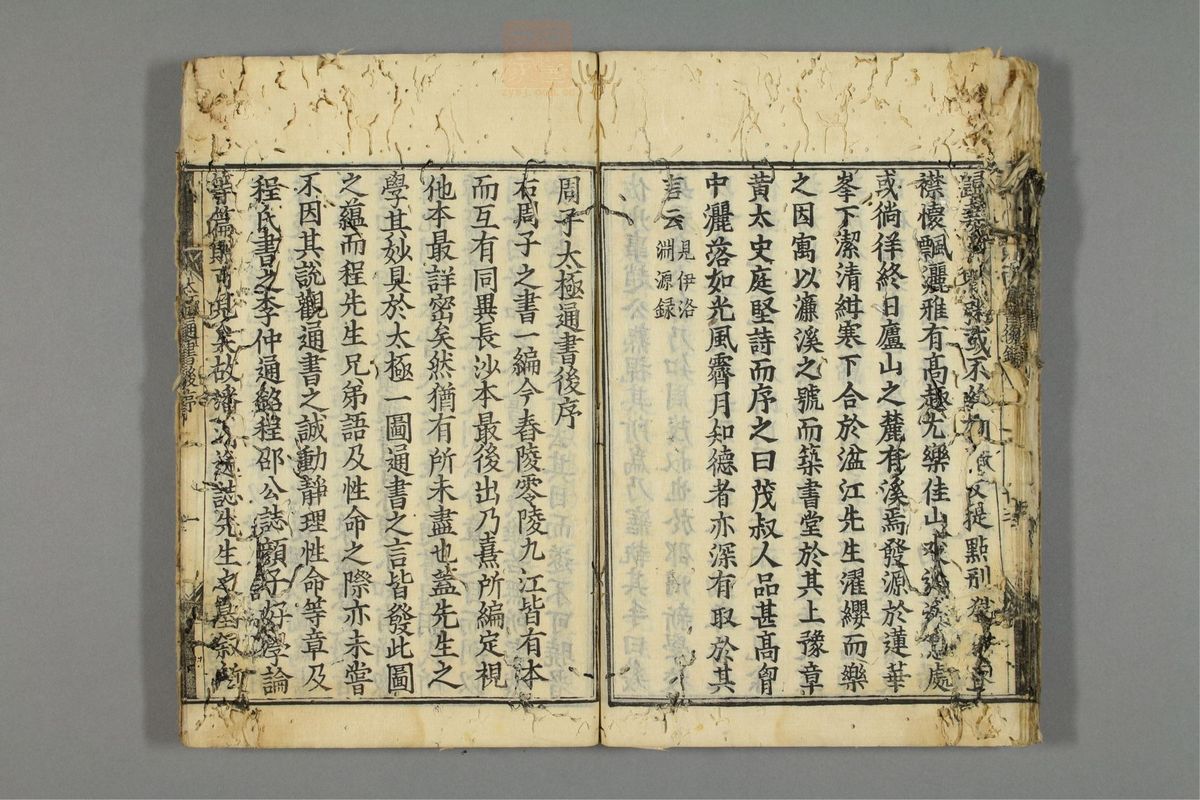 襟懷飄灑雅有高趣尤樂佳山水遇適意處
或徜徉終日廬山之麓有溪焉發源於蓮華
峯下潔清紺寒下合於湓江先生濯纓而樂
之因寓以濂溪之號而築書堂於其上豫章
黃太史庭堅詩而序之曰茂叔人品甚高胷
中灑落如光風霽月知德者亦深有取於其
言云見伊洛
淵源録
周子太極通書後序
右周子之書一編今舂陵零陵九江皆有本
而互有同異長沙本最後出乃熹所編定視
他本最詳密矣然猶有所未盡也蓋先生之
學其妙具於太極一圖通書之言皆發此圖
之蘊而程先生兄弟語及性命之際亦未嘗
不因其說觀通書之誠動靜理性命等章及
程氏書之李仲通銘程邵公誌顔子好學論
等篇則可見矣故潘清逸誌先生之墓叙
太極通書後序
一